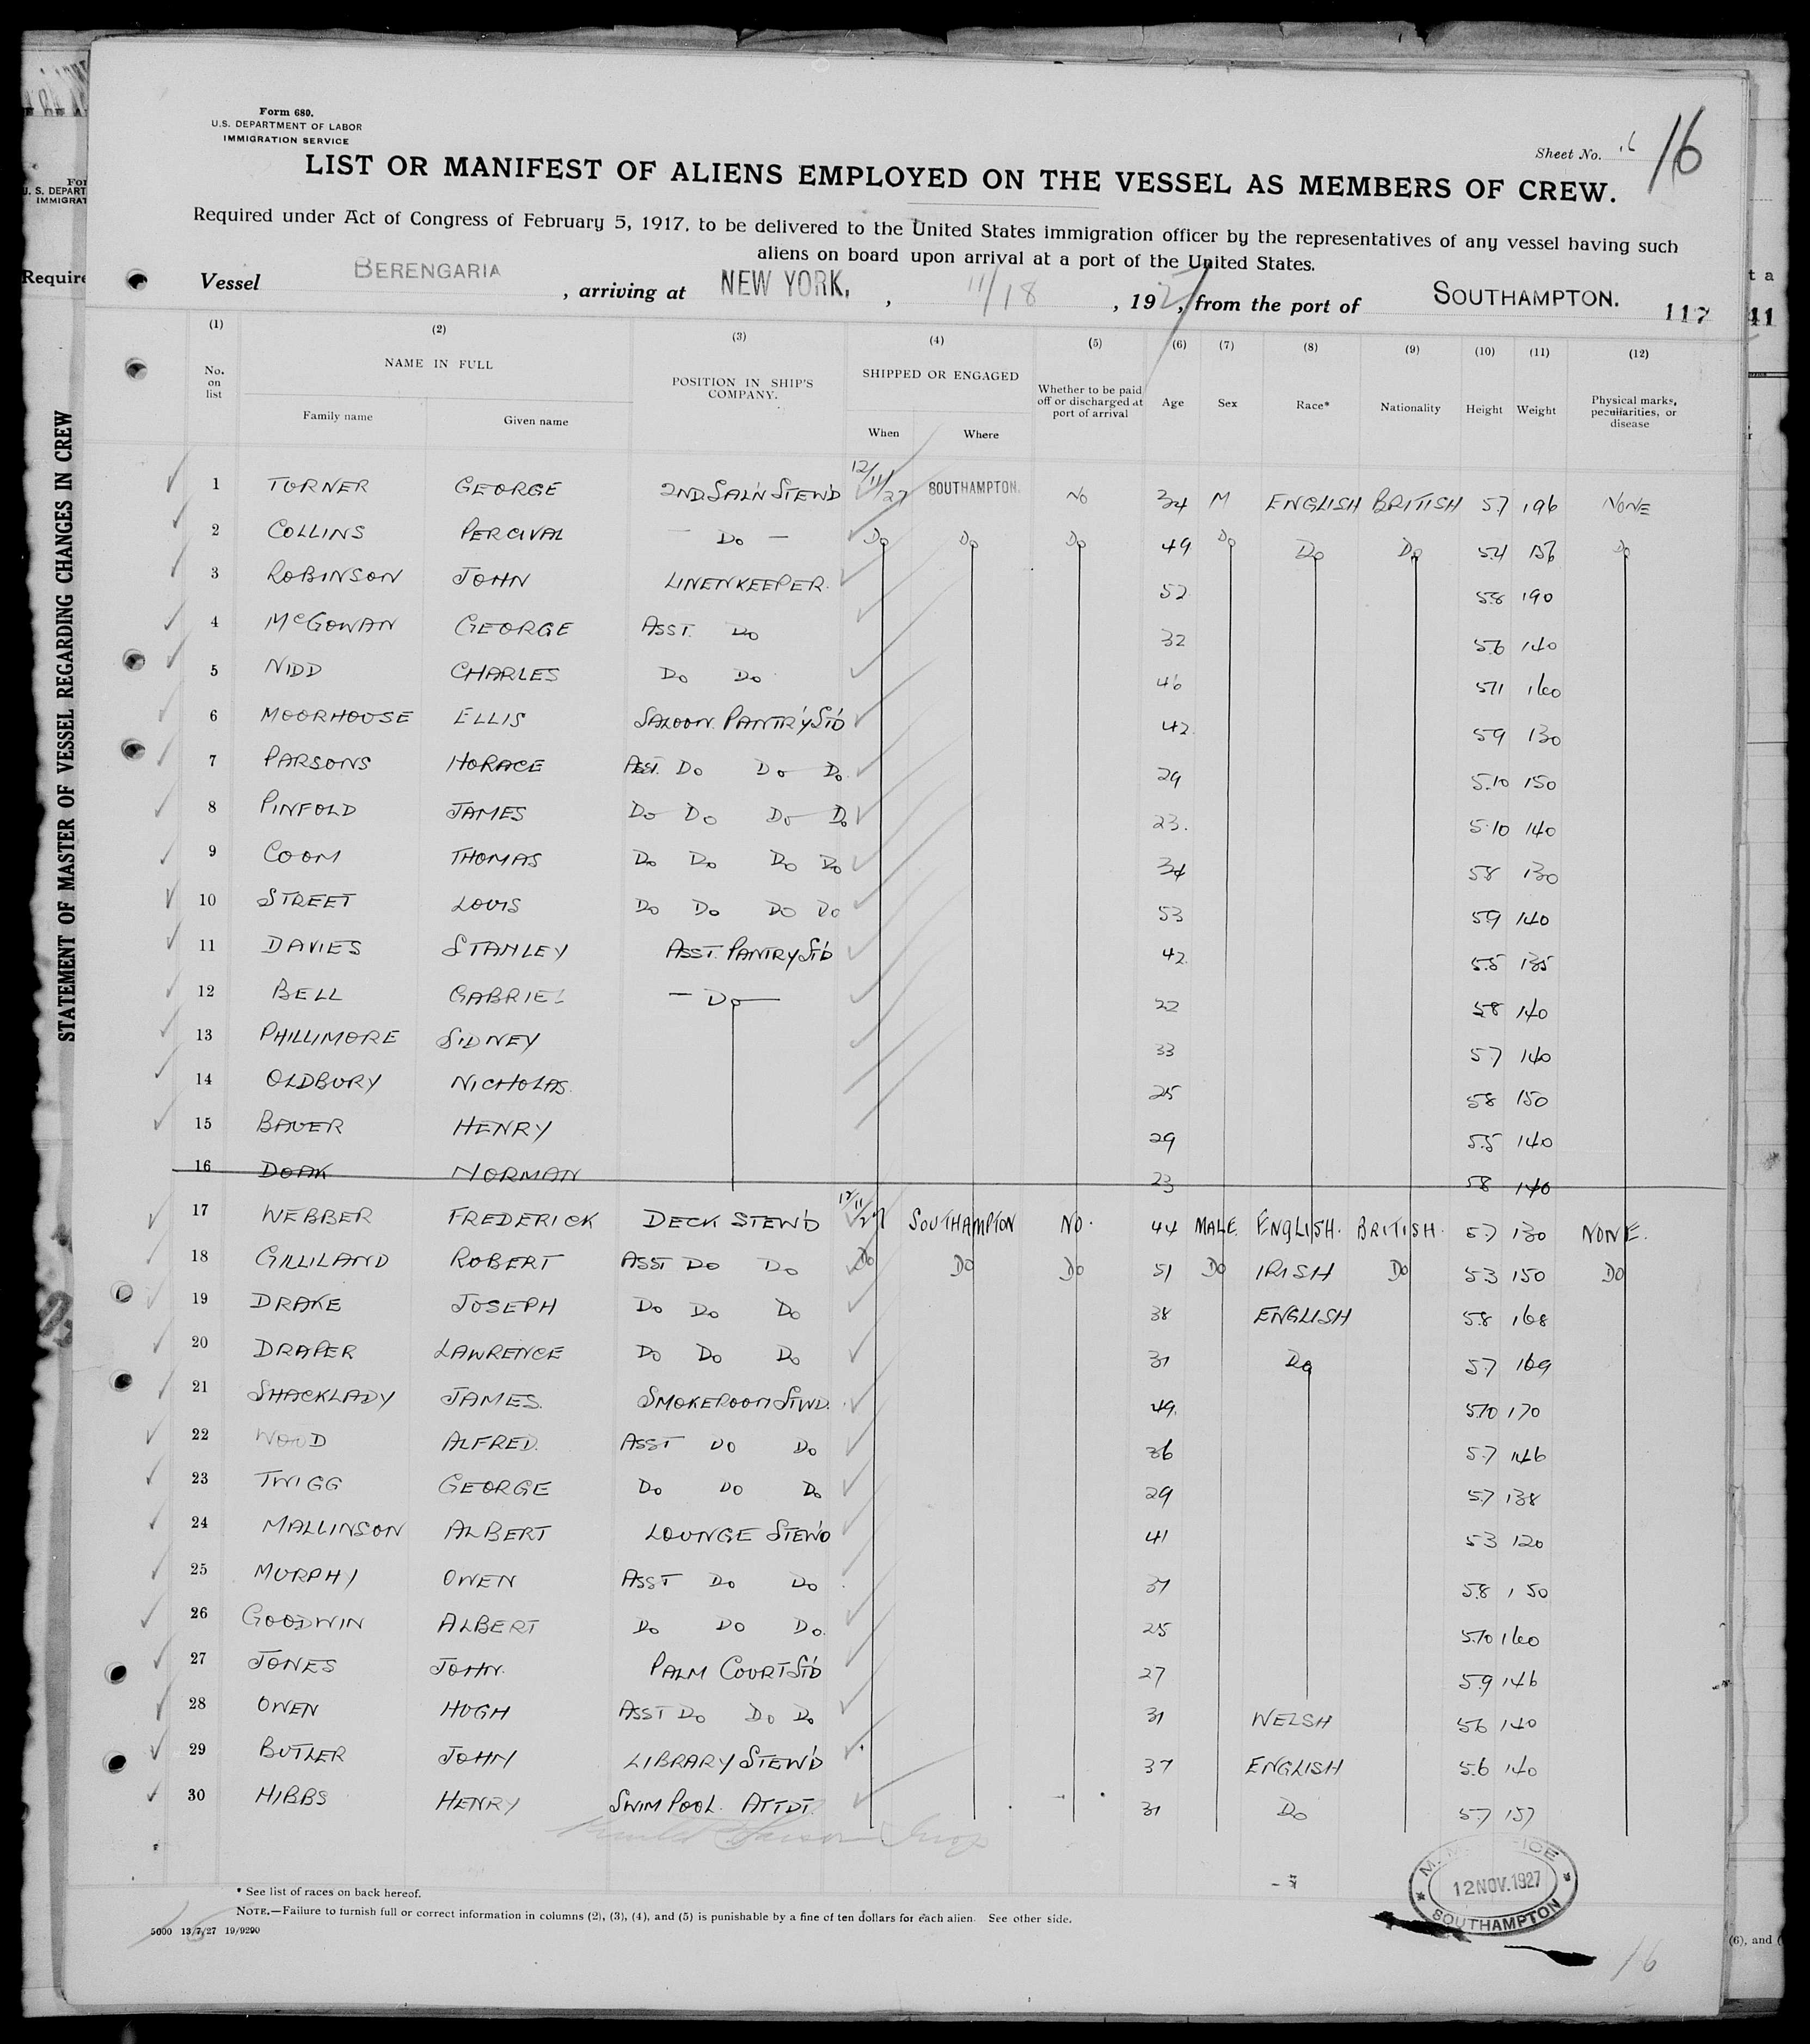 Form 680.
U.S. DEPARTMENT OF LABOR
IMMIGRATION SERVICE
Sheet No. 16 16
LIST OR MANIFEST OF ALIENS EMPLOYED ON THE VESSEL AS MEMBERS OF CREW.
Required under Act of Congress of February 5, 1917, to be delivered to the United States immigration officer by the representatives of any vessel having such
aliens on board upon arrival at a port of the United States.
Vessel BERENGARIA, arriving at NEW YORK, , 11/18, 1927, from the port of SOUTHAMPTON. 117
STATEMENT OF MASTER OF VESSEL REGARDING CHANGES IN CREW
(1) (2) (3) (4) (5) (6) (7) (8) (9) (10) (11) (12)
No. on list NAME IN FULL POSITION IN SHIP'S COMPANY. SHIPPED OR ENGAGED Whether to be paid off or discharged at port of arrival Age Sex Race* Nationality Height Weight Physical marks, peculiarities, or disease
Family name Given name When Where
1 TURNER GEORGE 2ND SAL'N STEW'D 12/11/27 SOUTHAMPTON. NO 34 M ENGLISH BRITISH 5.7 196 NONE
2 COLLINS PERCIVAL — DO — DO DO DO 49 DO DO DO 5.4 156 DO
3 ROBINSON JOHN LINENKEEPER. 52 5.8 190
4 McGOWAN GEORGE ASST. DO 32 5.6 140
5 NIDD CHARLES DO DO 46 5.11 160
6 MOORHOUSE ELLIS SALOON PANTR'Y ST'D 42 5.9 130
7 PARSONS HORACE ASST. DO DO DO. 29 5.10 150
8 PINFOLD JAMES DO DO DO DO 23. 5.10 140
9 COOM THOMAS DO DO DO DO 34 5.8 130
10 STREET LOUIS DO DO DO DO 53 5.9 140
11 DAVIES STANLEY ASST. PANTRY ST'D 42 5.5 135
12 BELL GABRIEL — DO — 22 5.8 140
13 PHILLIMORE SIDNEY 33 5.7 140
14 OLDBURY NICHOLAS. 25 5.8 150
15 BAUER HENRY 29 5.5 140
16 DOAK NORMAN 23 5.8 140
17 WEBBER FREDERICK DECK STEW'D 12/11/27 SOUTHAMPTON NO. 44 MALE. ENGLISH. BRITISH. 5.7 130 NONE.
18 GILLILAND ROBERT ASST DO DO DO DO DO 51 DO IRISH DO 5.3 150 DO
19 DRAKE JOSEPH DO DO DO 38 ENGLISH 5.8 168
20 DRAPER LAWRENCE DO DO DO 31 DO 5.7 169
21 SHACKLADY JAMES. SMOKEROOM STWD. 49. 5.10 170
22 WOOD ALFRED. ASST DO DO 36 5.7 146
23 TWIGG GEORGE DO DO DO 29 5.7 138
24 MALLINSON ALBERT LOUNGE STEW'D 41 5.3 120
25 MURPHY OWEN ASST DO DO 31 5.8 150
26 GOODWIN ALBERT DO DO DO. 25 5.10 160
27 JONES JOHN. PALM COURT ST'D 27 5.9 146
28 OWEN HUGH ASST DO DO DO 31 WELSH 5.6 140
29 BUTLER JOHN LIBRARY STEW'D 37 ENGLISH 5.6 140
30 HIBBS HENRY SWIM POOL. ATTDT. 31 DO 5.7 157
12 NOV. 1927
SOUTHAMPTON
* See list of races on back hereof.
NOTE.—Failure to furnish full or correct information in columns (2), (3), (4), and (5) is punishable by a fine of ten dollars for each alien. See other side.
5000 13/7/27 19/9290
16